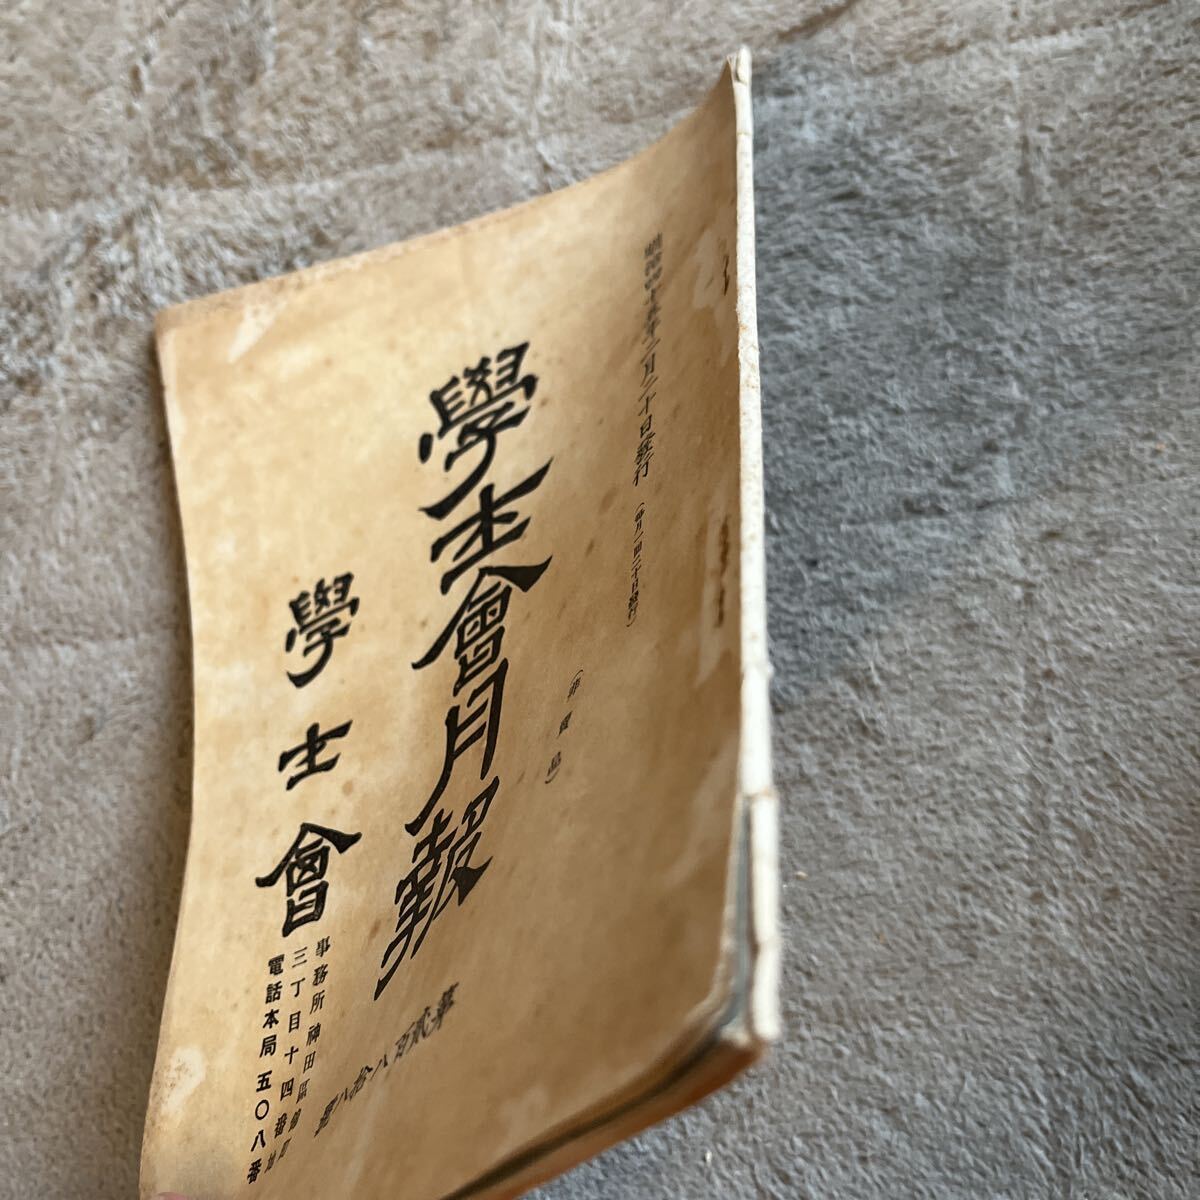 明治四十五年二月二十日發行
(毎月一回二十日發行)
(非賣品)
學士會月報
第貳百八拾八號
學士會
事務所神田區
三丁目十四番地
電話本局五〇八番